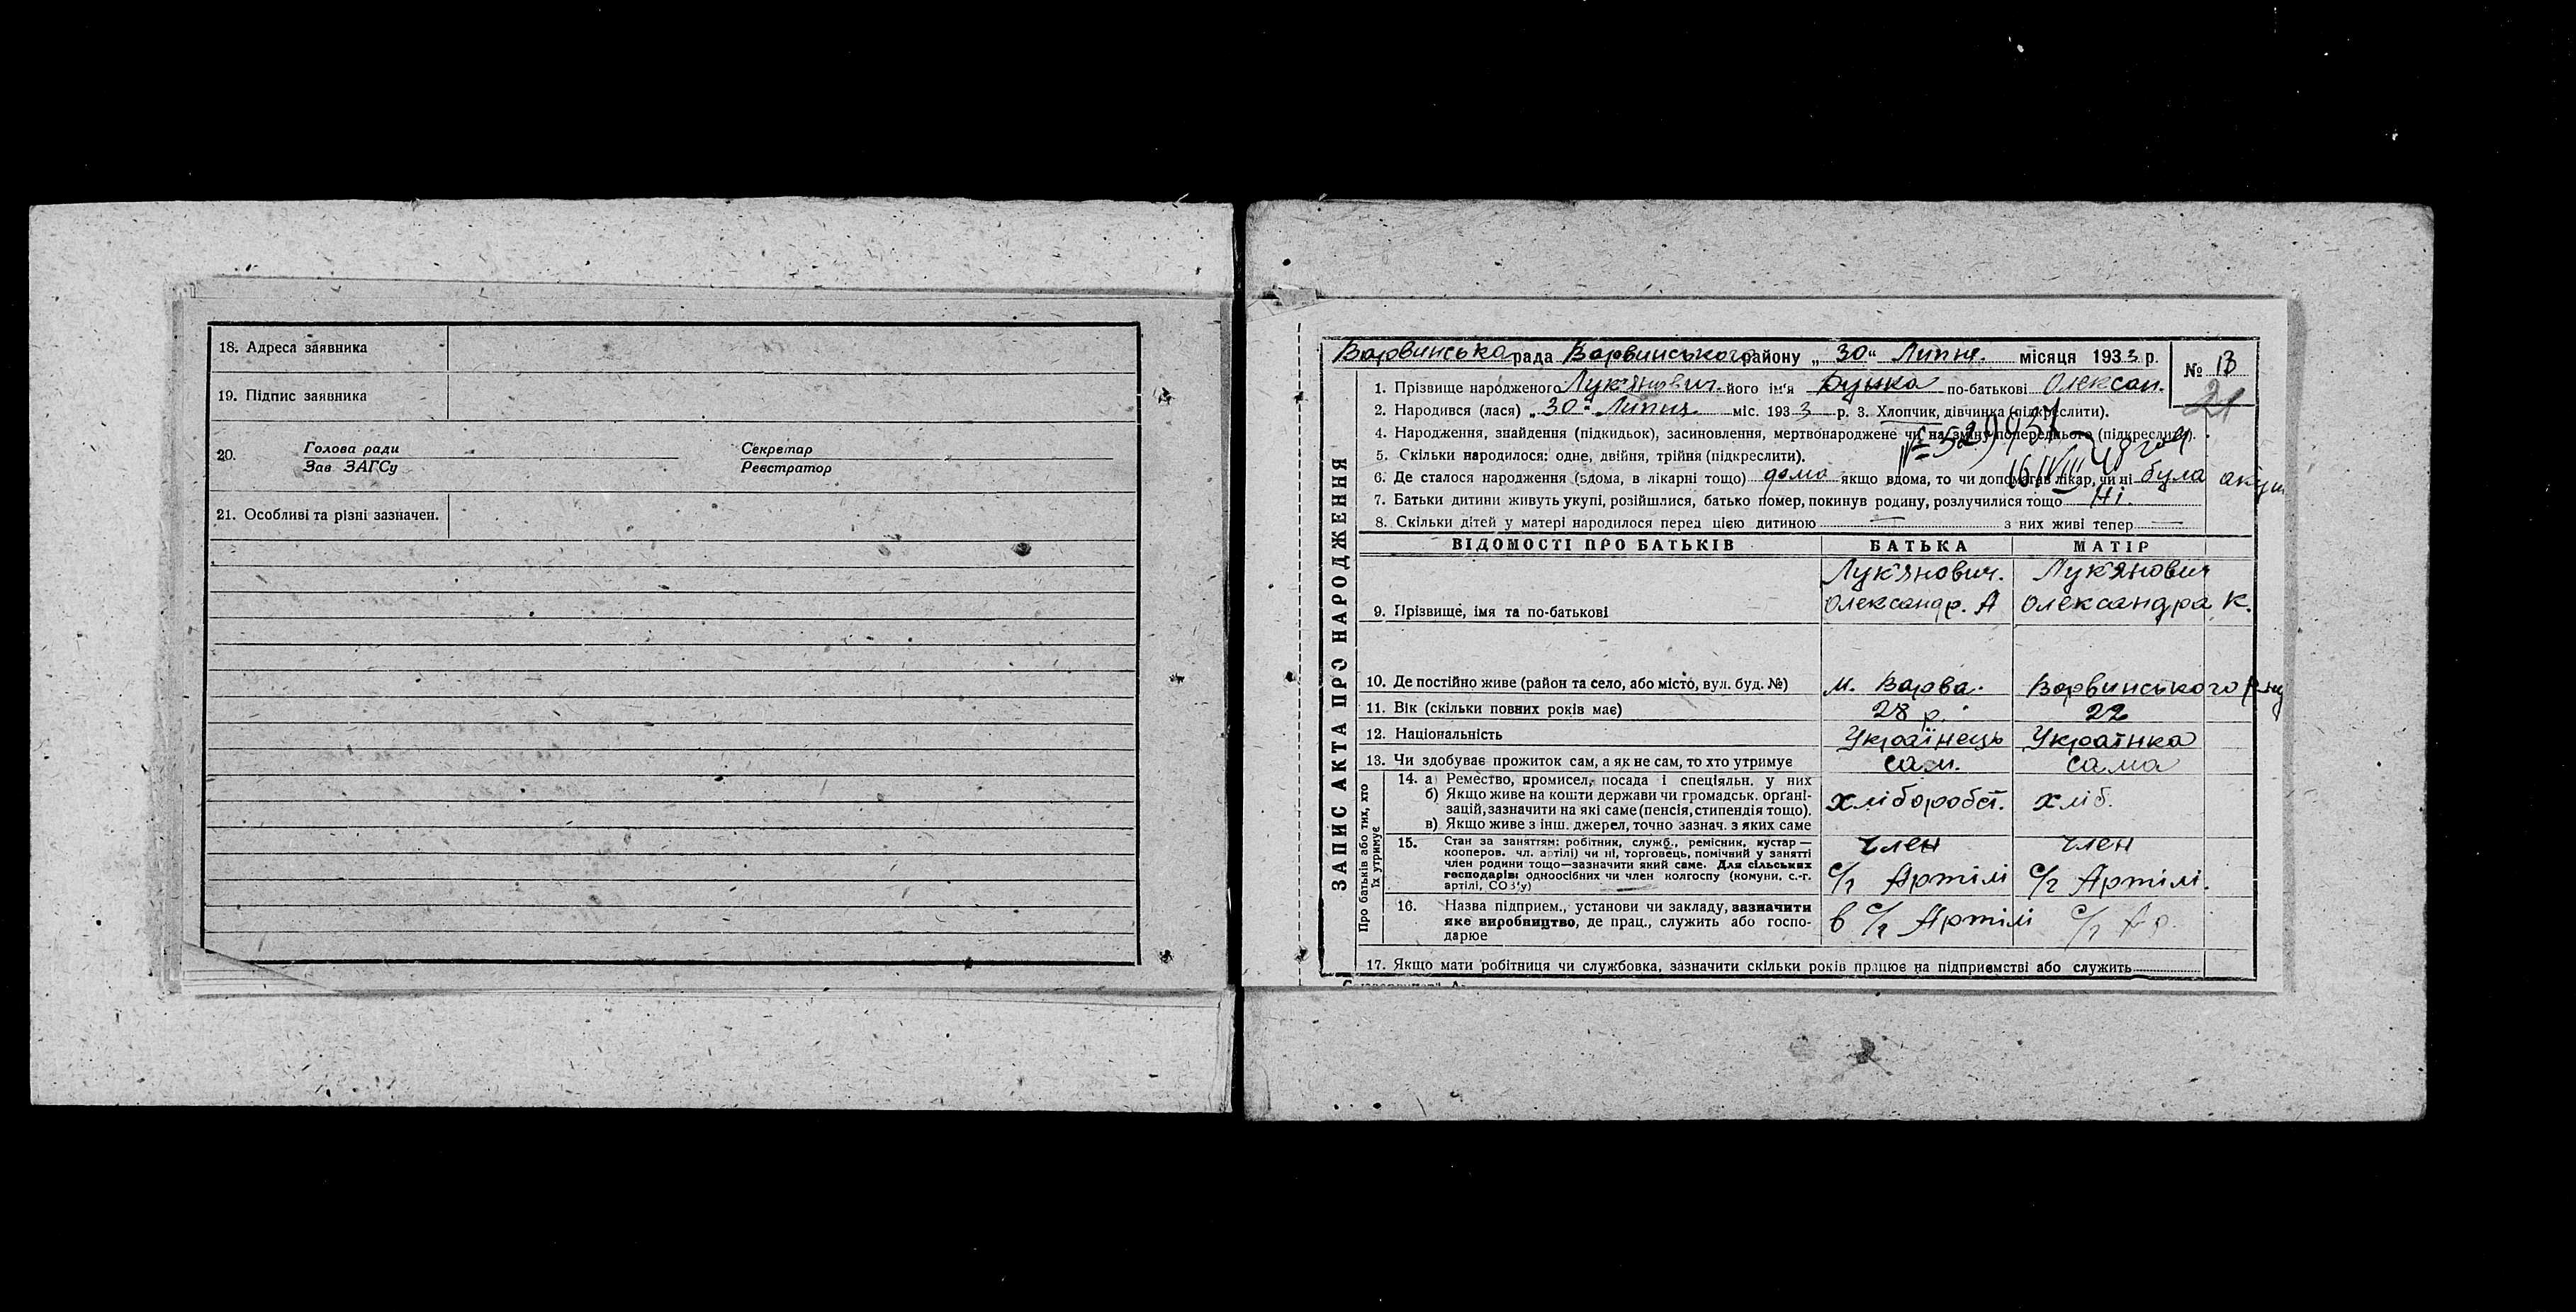 18. Адреса заявника
19. Підпис заявника
20. Голова ради Секретар
Зав ЗАГСу Реєстратор
21. Особливі та різні зазначен.
ЗАПИС АКТА ПРО НАРОДЖЕННЯ
Варвинська рада Варвинського району „30“ Липня місяця 1933 р.
№ 13
21
1. Прізвище народженого Лук'янович його ім'я по-батькові Олексан.
2. Народився (лася) „30“ Липня міс. 1933 р. 3. Хлопчик, дівчинка (підкреслити).
4. Народження, знайдення (підкидьок), засиновлення, мертвонароджене чи на зміну попереднього (підкреслити).
№ 529937
5. Скільки народилося: одне, двійня, трійня (підкреслити).
16/VIII 48 год
6. Де сталося народження (вдома, в лікарні тощо) дома якщо вдома, то чи допомагав лікар, чи ні була акуш
7. Батьки дитини живуть укупі, розійшлися, батько помер, покинув родину, розлучилися тощо Ні.
8. Скільки дітей у матері народилося перед цією дитиною — з них живі тепер —
ВІДОМОСТІ ПРО БАТЬКІВ БАТЬКА МАТІР
Лук'янович. Лук'янович
9. Прізвище, імя та по-батькові Олександр. А Олександра К.
10. Де постійно живе (район та село, або місто, вул. буд. №) м. Варва. Варвинського р-ну
11. Вік (скільки повних років має) 28 р. 22
12. Національність Українець Українка
13. Чи здобуває прожиток сам, а як не сам, то хто утримує сам. сама
Про батьків або тих, хто
їх утримує
14. а) Ремество, промисел, посада і спеціяльн. у них
б) Якщо живе на кошти держави чи громадськ. орґані-
зацій, зазначити на які саме (пенсія, стипендія тощо). хлібороб хліб.
в) Якщо живе з інш. джерел, точно зазнач. з яких саме
15. Стан за заняттям: робітник, служб., ремісник, кустар — член член
кооперов. чл. артілі) чи ні, торговець, помічний у занятті
член родини тощо—зазначити який саме. Для сільських
господарів: одноосібних чи член колгоспу (комуни, с.-г. с/г Артілі с/г Артілі.
артілі, СОЗ'у)
16. Назва підприєм., установи чи закладу, зазначити
яке виробництво, де прац., служить або госпо- в с/г Артілі с/г Ар
дарює
17. Якщо мати робітниця чи службовка, зазначити скільки років працює на підприємстві або служить